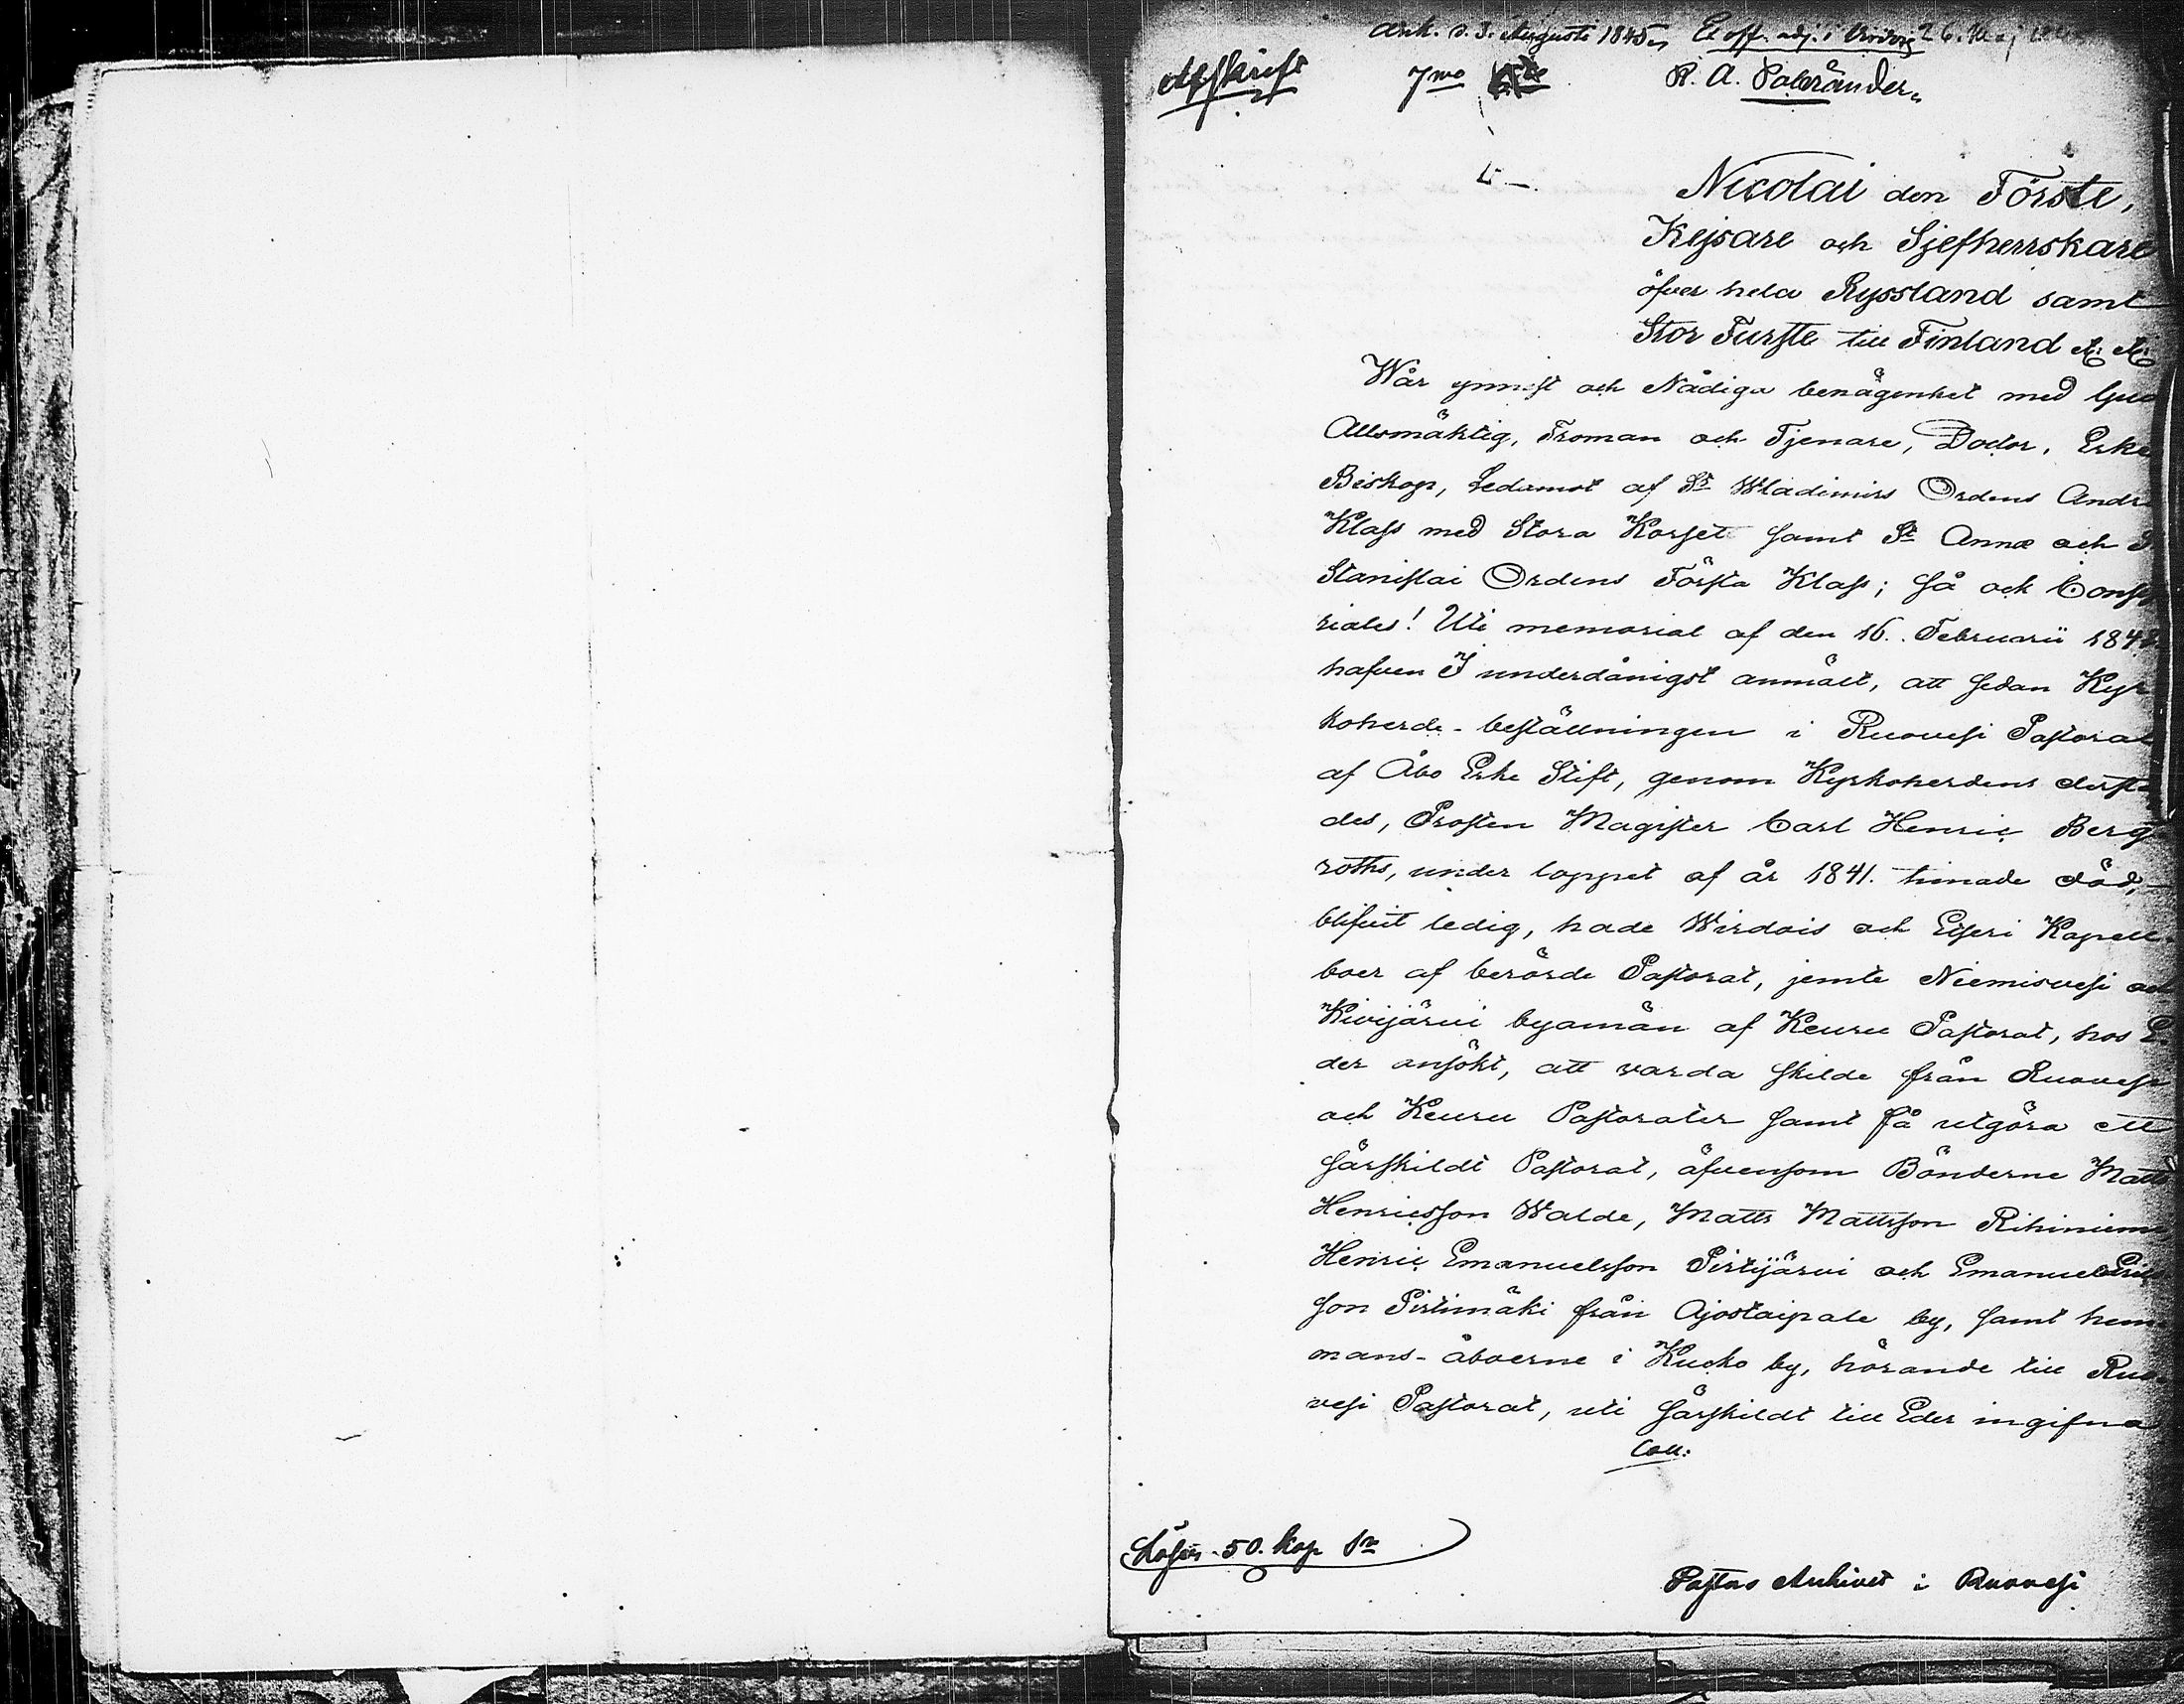 Ank. d. 3. Augusti 1845.
Afskrift 7mo R. A. Palander.
Nicolai den Förste,
Kejsare och Sjelfherrskare
öfver hela Ryssland samt
Stor Furste till Finland &. &.
Wår ynnest och Nådiga benägenhet med Gud
Allsmäktig, Troman och Tjenare, Doctor, Erke
Biskop, Ledamot af St Wladimirs Ordens Andr
Klass med Stora Korset samt St Annæ och S
Stanislai Ordens Första Klass; så och Consisto
riales! Uti memorial af den 16. Februarii 184
hafven I underdånigst anmält, att sedan Kyr
koherde-beställningen i Ruovesi Pastorat
af Åbo Erke Stift, genom Kyrkoherdens derst
des, Prosten Magister Carl Henric Berg
roths, under loppet af år 1841. timade död,
blifvit ledig, hade Wirdois och Etseri Kapell
boer af berörde Pastorat, jemte Niemisvesi och
Kivijärvi byamän af Keuru Pastorat, hos E
der ansökt, att varda skilde från Ruovesi
och Keuru Pastorater samt få utgöra ett
särskildt Pastorat, äfvensom Bönderne Matts
Henricsson Walde, Matts Mattsson Rihiniemi
Henric Emanuelsson Pirtijärvi och Emanuel Erics
son Pirtimäki från Ajostaipale by, samt hem
mans-åboerne i Kucko by, hörande till Ruo
vesi Pastorat, uti särskildt till Eder ingifna
Coll:
Löser 50. kop Sr
Pastors Archivet i Ruovesi